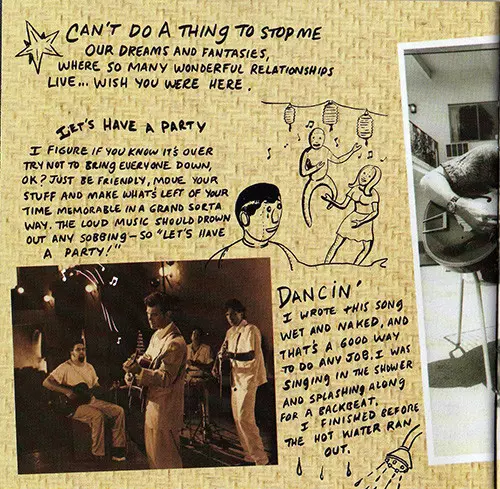 CAN'T DO A THING TO STOP ME
OUR DREAMS AND FANTASIES,
WHERE SO MANY WONDERFUL RELATIONSHIPS
LIVE... WISH YOU WERE HERE.
LET'S HAVE A PARTY
I FIGURE IF YOU KNOW IT'S OVER
TRY NOT TO BRING EVERYONE DOWN,
OK? JUST BE FRIENDLY, MOVE YOUR
STUFF AND MAKE WHAT'S LEFT OF YOUR
TIME MEMORABLE IN A GRAND SORTA
WAY. THE LOUD MUSIC SHOULD DROWN
OUT ANY SOBBING - SO "LET'S HAVE
A PARTY!"
DANCIN'
I WROTE THIS SONG
WET AND NAKED, AND
THAT'S A GOOD WAY
TO DO ANY JOB. I WAS
SINGING IN THE SHOWER
AND SPLASHING ALONG
FOR A BACKBEAT.
I FINISHED BEFORE
THE HOT WATER RAN
OUT.